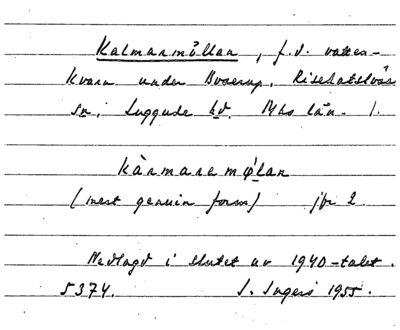 Kalmarmöllan, f.d. vatten-
kvarn under Boserup, Risekatslösa
sn, Luggude hd. Mhs län. 1.
kàrmaremǿlan
(mest genuin form) jfr 2.
Nedlagd i slutet av 1940-talet.
5374. I. Ingers 1955.